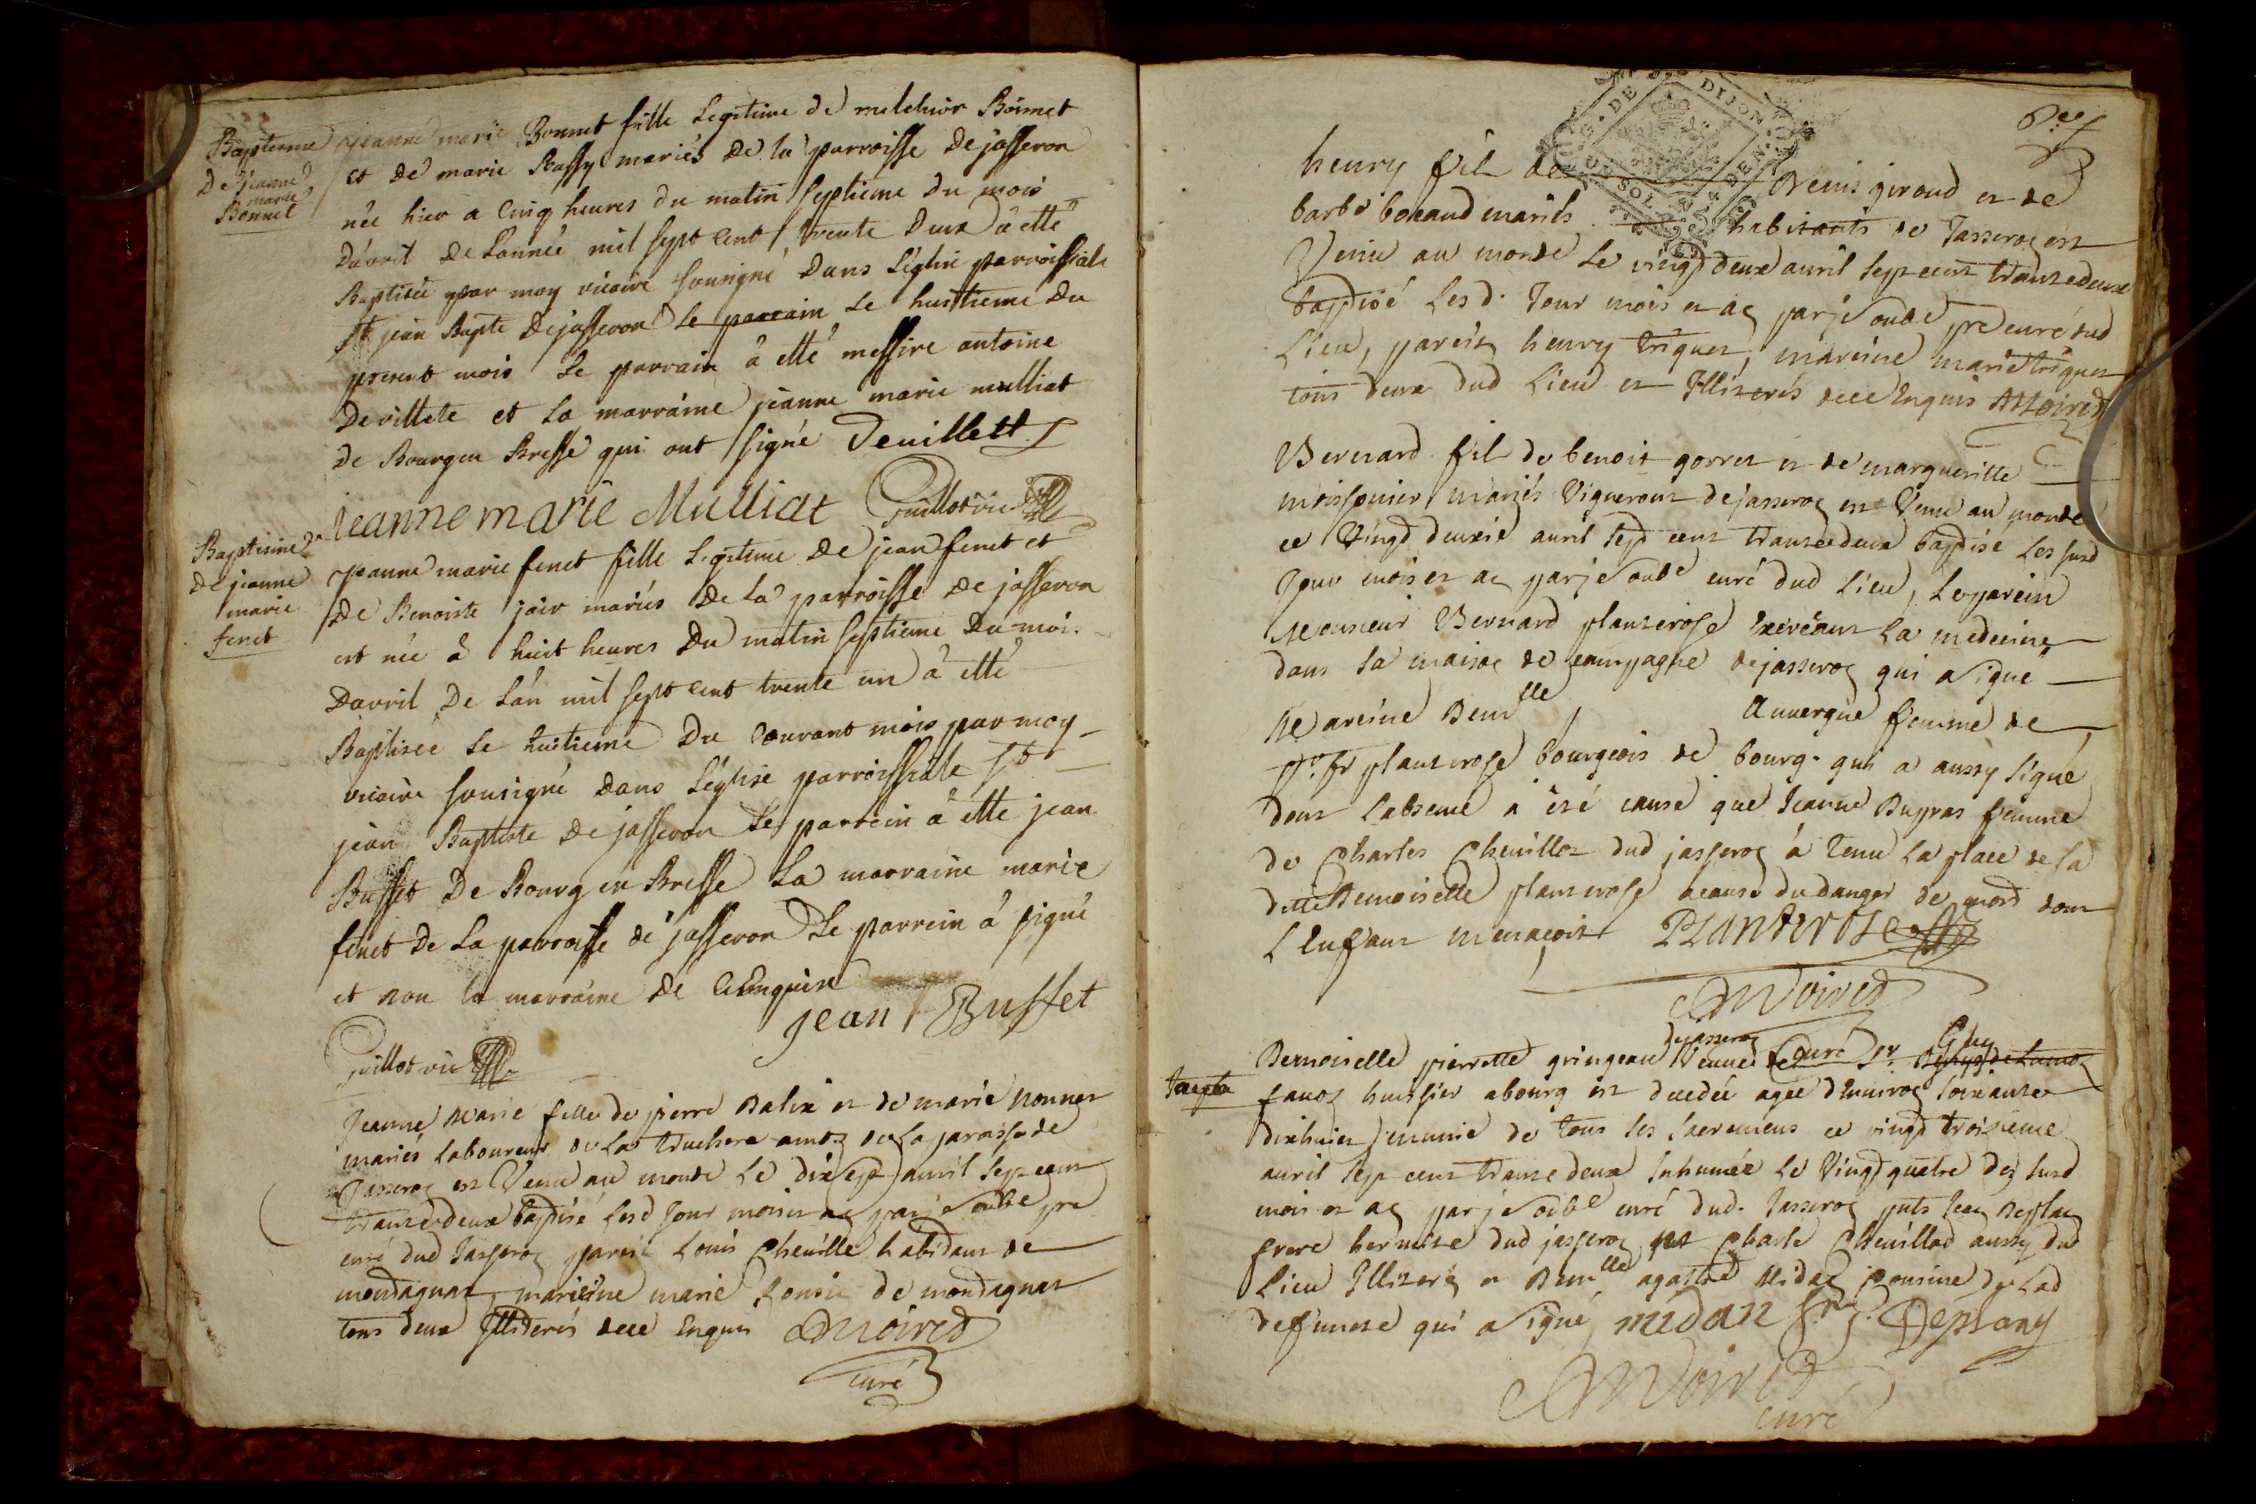 Baptesme
De jeanne
marie
Bonnet
jeanne marie Bonnet fille Legitime de melchior Bonnet
et de marie Bassy mariés de la parroisse De jasseron
née hier a cinq heures du matin septieme du mois
D'avril De L'année mil sept cent trente Deux à etté
Baptisée par moy vicaire sousigné Dans L'eglise parroissiale
st jean Bapte De jasseron le parrain Le huitieme Du
present mois Le parrain à etté messire antoine
De villete et La marraine jeanne marie mulliat
de Bourg en Bresse qui ont signé Devillett
Jeanne marie Mulliat Guillot vic
Baptisme
De jeanne
marie
fenet
jeanne marie fenet fille Legitime De jean fenet et
De Benoiste jair mariés De la parroisse De jasseron
est née à huit heures Du matin septieme Du mois
Davril De L'an mil sept cent trente un à etté
Baptisée Le huitieme Du courant mois par moy
vicaire sousigné Dans L'eglise parroissiale st
jean Baptiste De jasseron Le parrein à etté jean
Buffet De Bourg en Bresse La marraine marie
fenet De La parroisse de jasseron Le parrein à signé
et non la marraine De ce Enquise
jean Buffet
Guillot vic
Jeanne Marie fille de pierre Dalix et de marie Nonnet
mariés laboureurs de La truchere de La paroisse de
Jasseron est Venue au monde Le dix sept avril sept cent
trante deux baptisé Lesd Jour mois et an par je soubné pre
curé dud Jasseron parein Louis Cheville habitant de
montagnat, mareine marie de montagnat
tous deux Illiterés de ce Enquis ANoired
curé
henry fils de Denis giroud et de
barbe bonaud mariés habitants de Jasseron est
Venu au monde Le vingt deux avril sept cent trante deux
baptisé Lesd. Jour mois et an par je soubné pre curé dud
Lieu, parein henry triquet, mareine marie triquet
tous deux dud Lieu et Illiterés de ce Enquis ANoired
Bernard fils de benoit gorret et de margueritte
moissonier mariés Vignerons de jasseron est Venu au monde
ce Vingt deuxie avril sept cent trante deux baptisé Les susd
Jour mois et an par je soubné curé dud Lieu, Le parein
Monsieur Bernard planterose Exercant La medecine
dans sa maison de campagne de jasseron qui a signé
Mareine Demlle Auvergne femme de
sr planterose bourgeois de bourg. qui a aussy signé
dont L'absence a eté cause que Jeanne Dupras femme
de Charles Chevillot dud jasseron à tenu La place de la
ditte Demoiselle planterose a cause du danger de mort dont
L'Enfant menaçoit PLANTEROSE
ANoired
Demoiselle pierrette gringeau Veuve de
de jasseron
huissier a bourg est decedée agee d'environ soixante
dix huict munie de tous les sacremens ce vingt troisieme
avril sept cent trante deux Inhumée Le Vingt quatre des susd
mois et an par je soubné curé dud. Jasseron pnts Jean Deplan
frere hermite dud jasseron et Charle Chevillod aussy dud
Lieu Illiteré et Demlle agathe Midan cousine de Lad
deffuncte qui a signé midan fr. J. Deplany
ANoired
curé